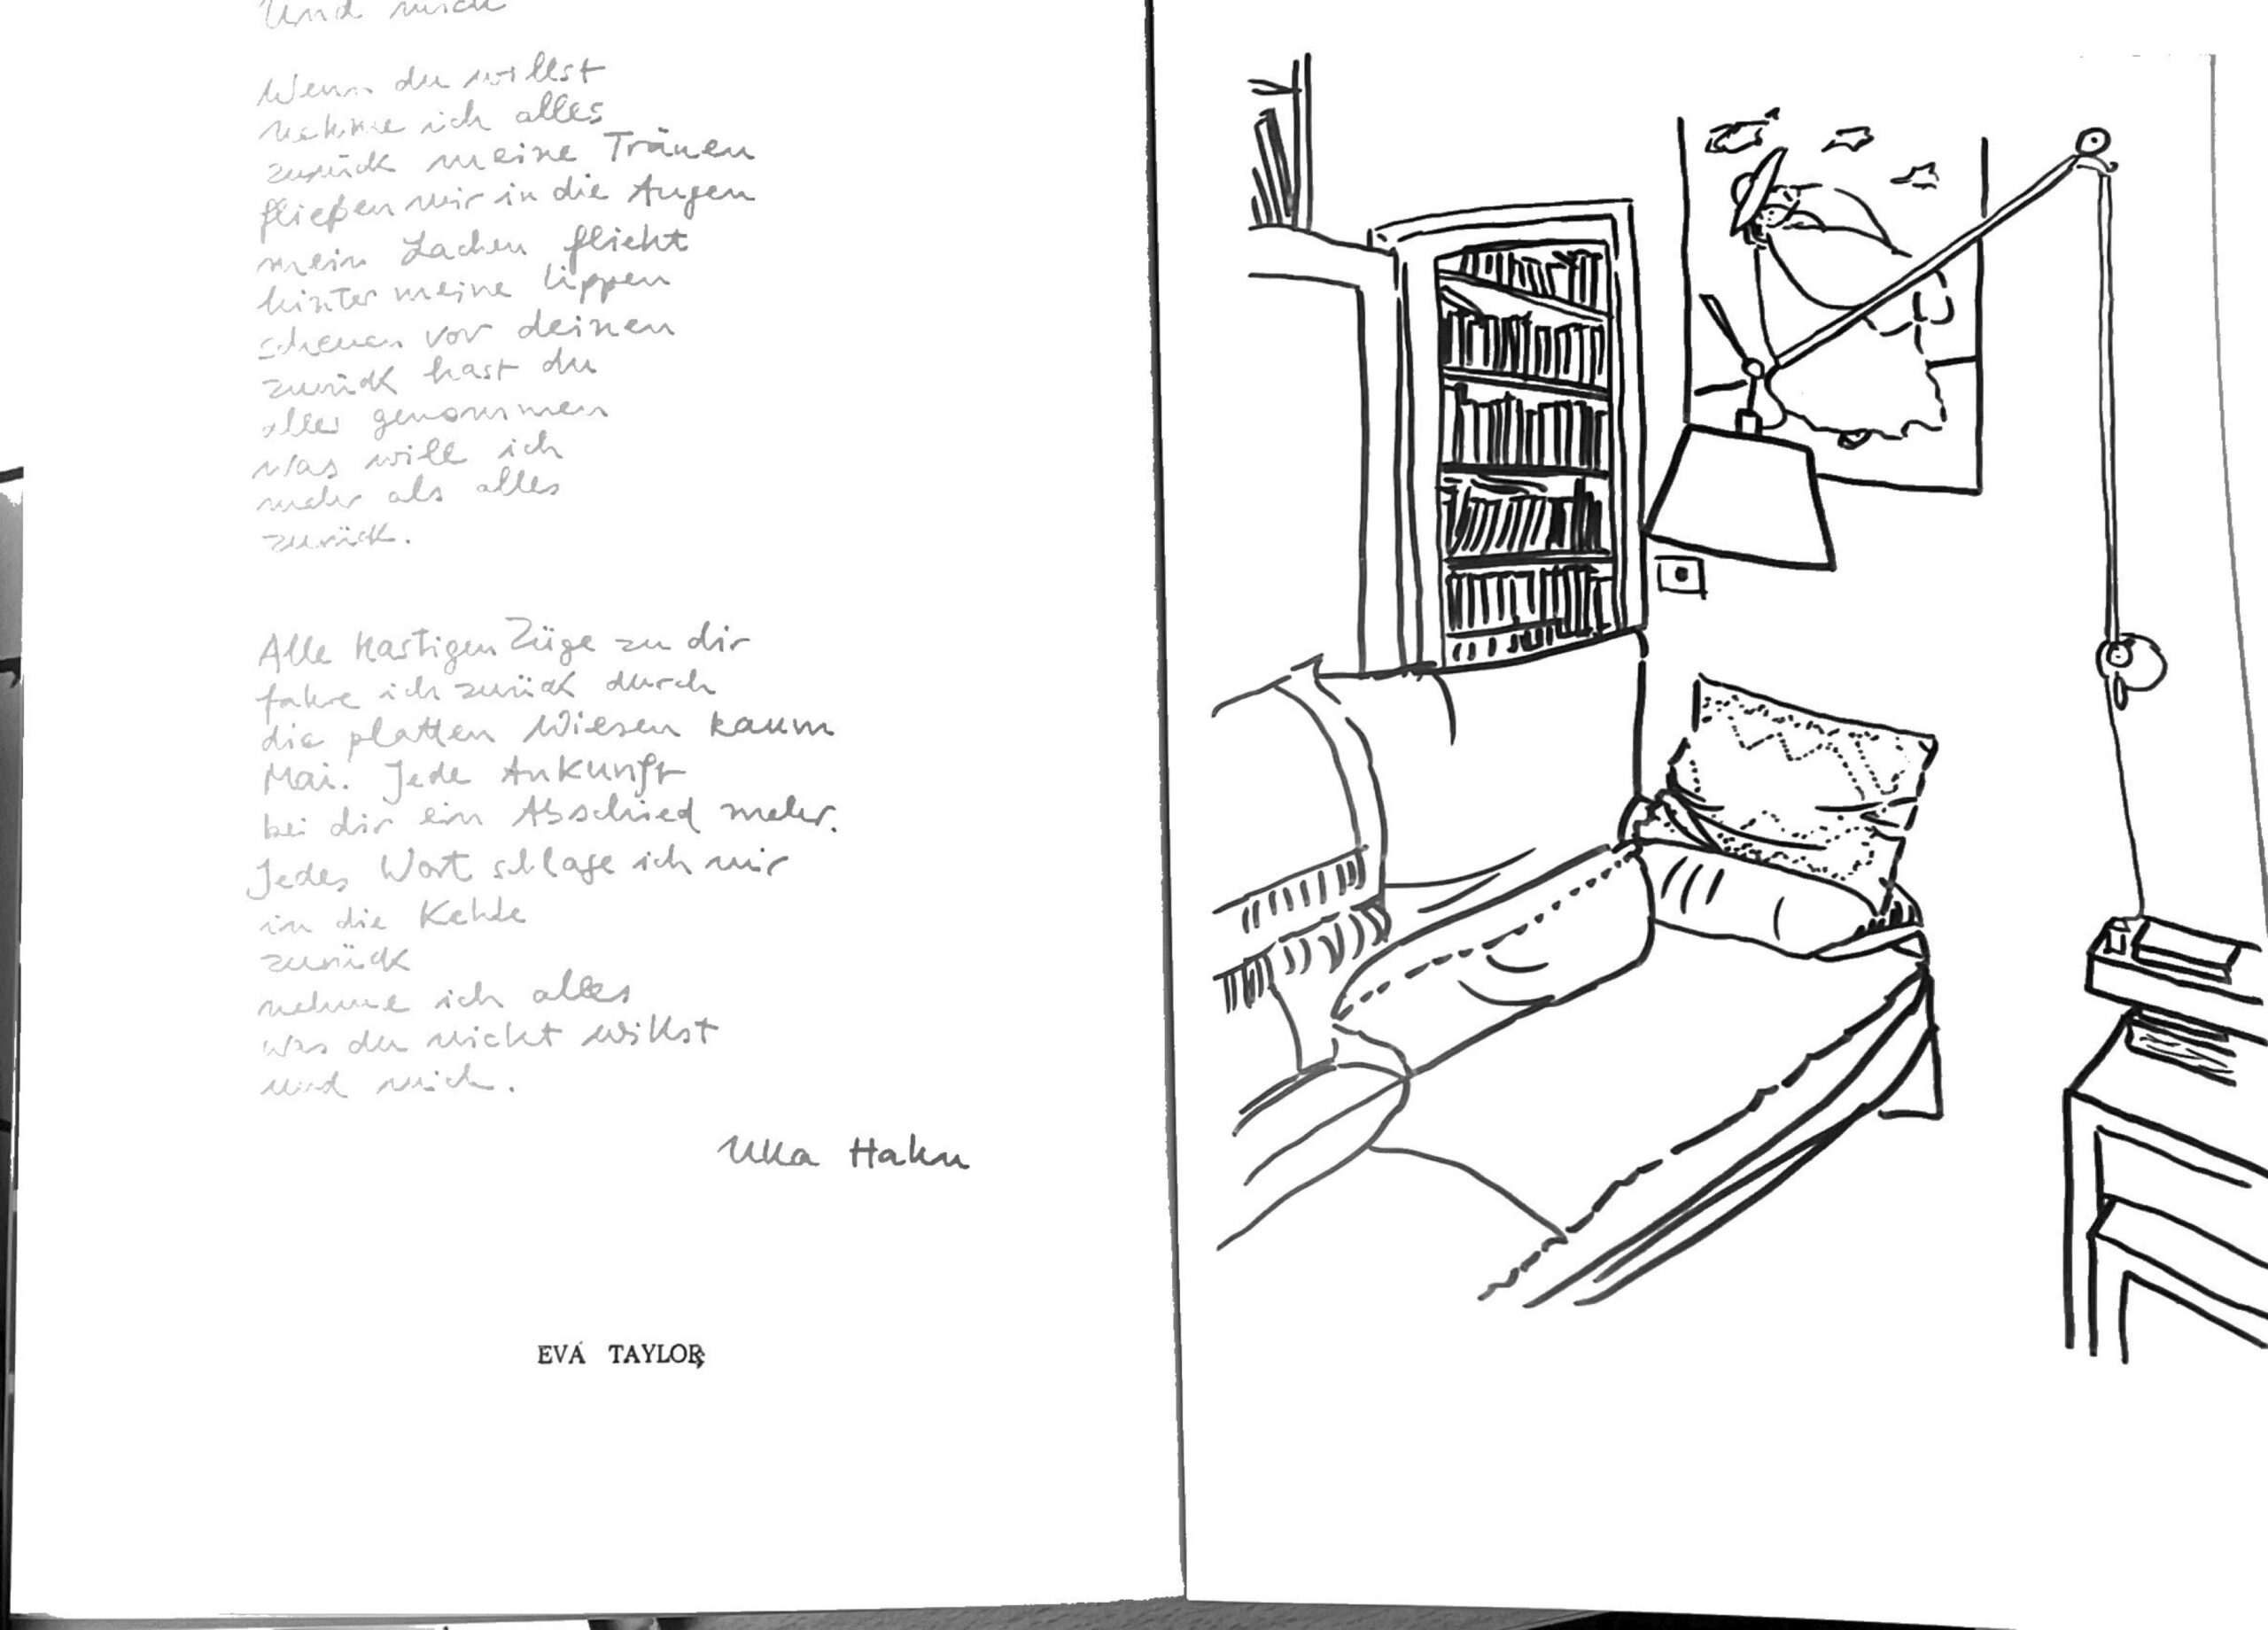 Und mich
Wenn du willst
nehme ich alles
zurück meine Tränen
fließen mir in die Augen
mein Lachen flieht
hinter meine Lippen
scheuen vor deinen
zurück hast du
alles genommen
was will ich
mehr als alles
zurück.
Alle hastigen Züge zu dir
fahre ich zurück durch
die platten Wiesen kaum
Mai. Jede Ankunft
bei dir ein Abschied mehr.
Jedes Wort schlage ich mir
in die Kehle
zurück
nehme ich alles
was du nicht willst
und mich.
Ulla Hahn
EVA TAYLOR